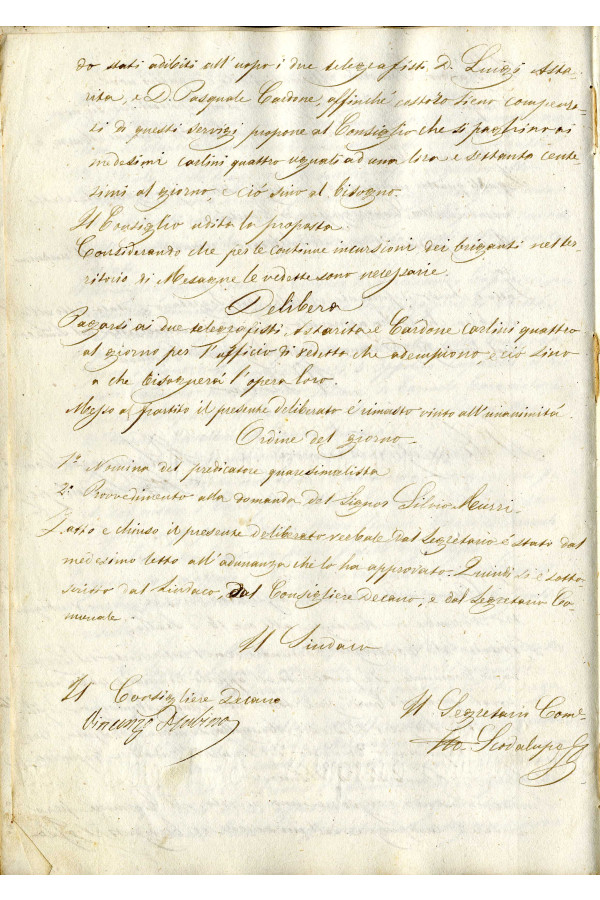 do stati adibiti all'uopo i due telegrafisti D. Luigi Asta-
rita, e D. Pasquale Cardone, affinchè costoro sieno compensa-
ti di questi servizi propone al Consiglio che si paghino ai
medesimi carlini quattro uguali ad una lira e settanta cente-
simi al giorno, e ciò sino al bisogno.
Il Consiglio udita la proposta
Considerando che per le continue incursioni dei briganti nel ter-
ritorio di Mesagne le vedette sono necessarie.
Delibera
Pagarsi ai due telegrafisti Astarita e Cardone carlini quattro
al giorno per l'ufficio di vedetta che adempiono, e ciò sino
a che bisognerà l'opera loro.
Messo a partito il presente deliberato è rimasto vinto all'unanimità.
Ordine del giorno.
1º Nomina del predicatore quaresimalista
2º Provvedimento alla domanda del Signor Silvio Murri.
Fatto e chiuso il presente deliberato verbale dal Segretario è stato dal
medesimo letto all'adunanza che lo ha approvato. Quindi si è sotto-
scritto dal Sindaco, dal Consigliere Decano, e dal Segretario Co-
munale.
Il Sindaco
Il Consigliere Decano
Vincenzo
Il Segretario Comle
Scodalupe